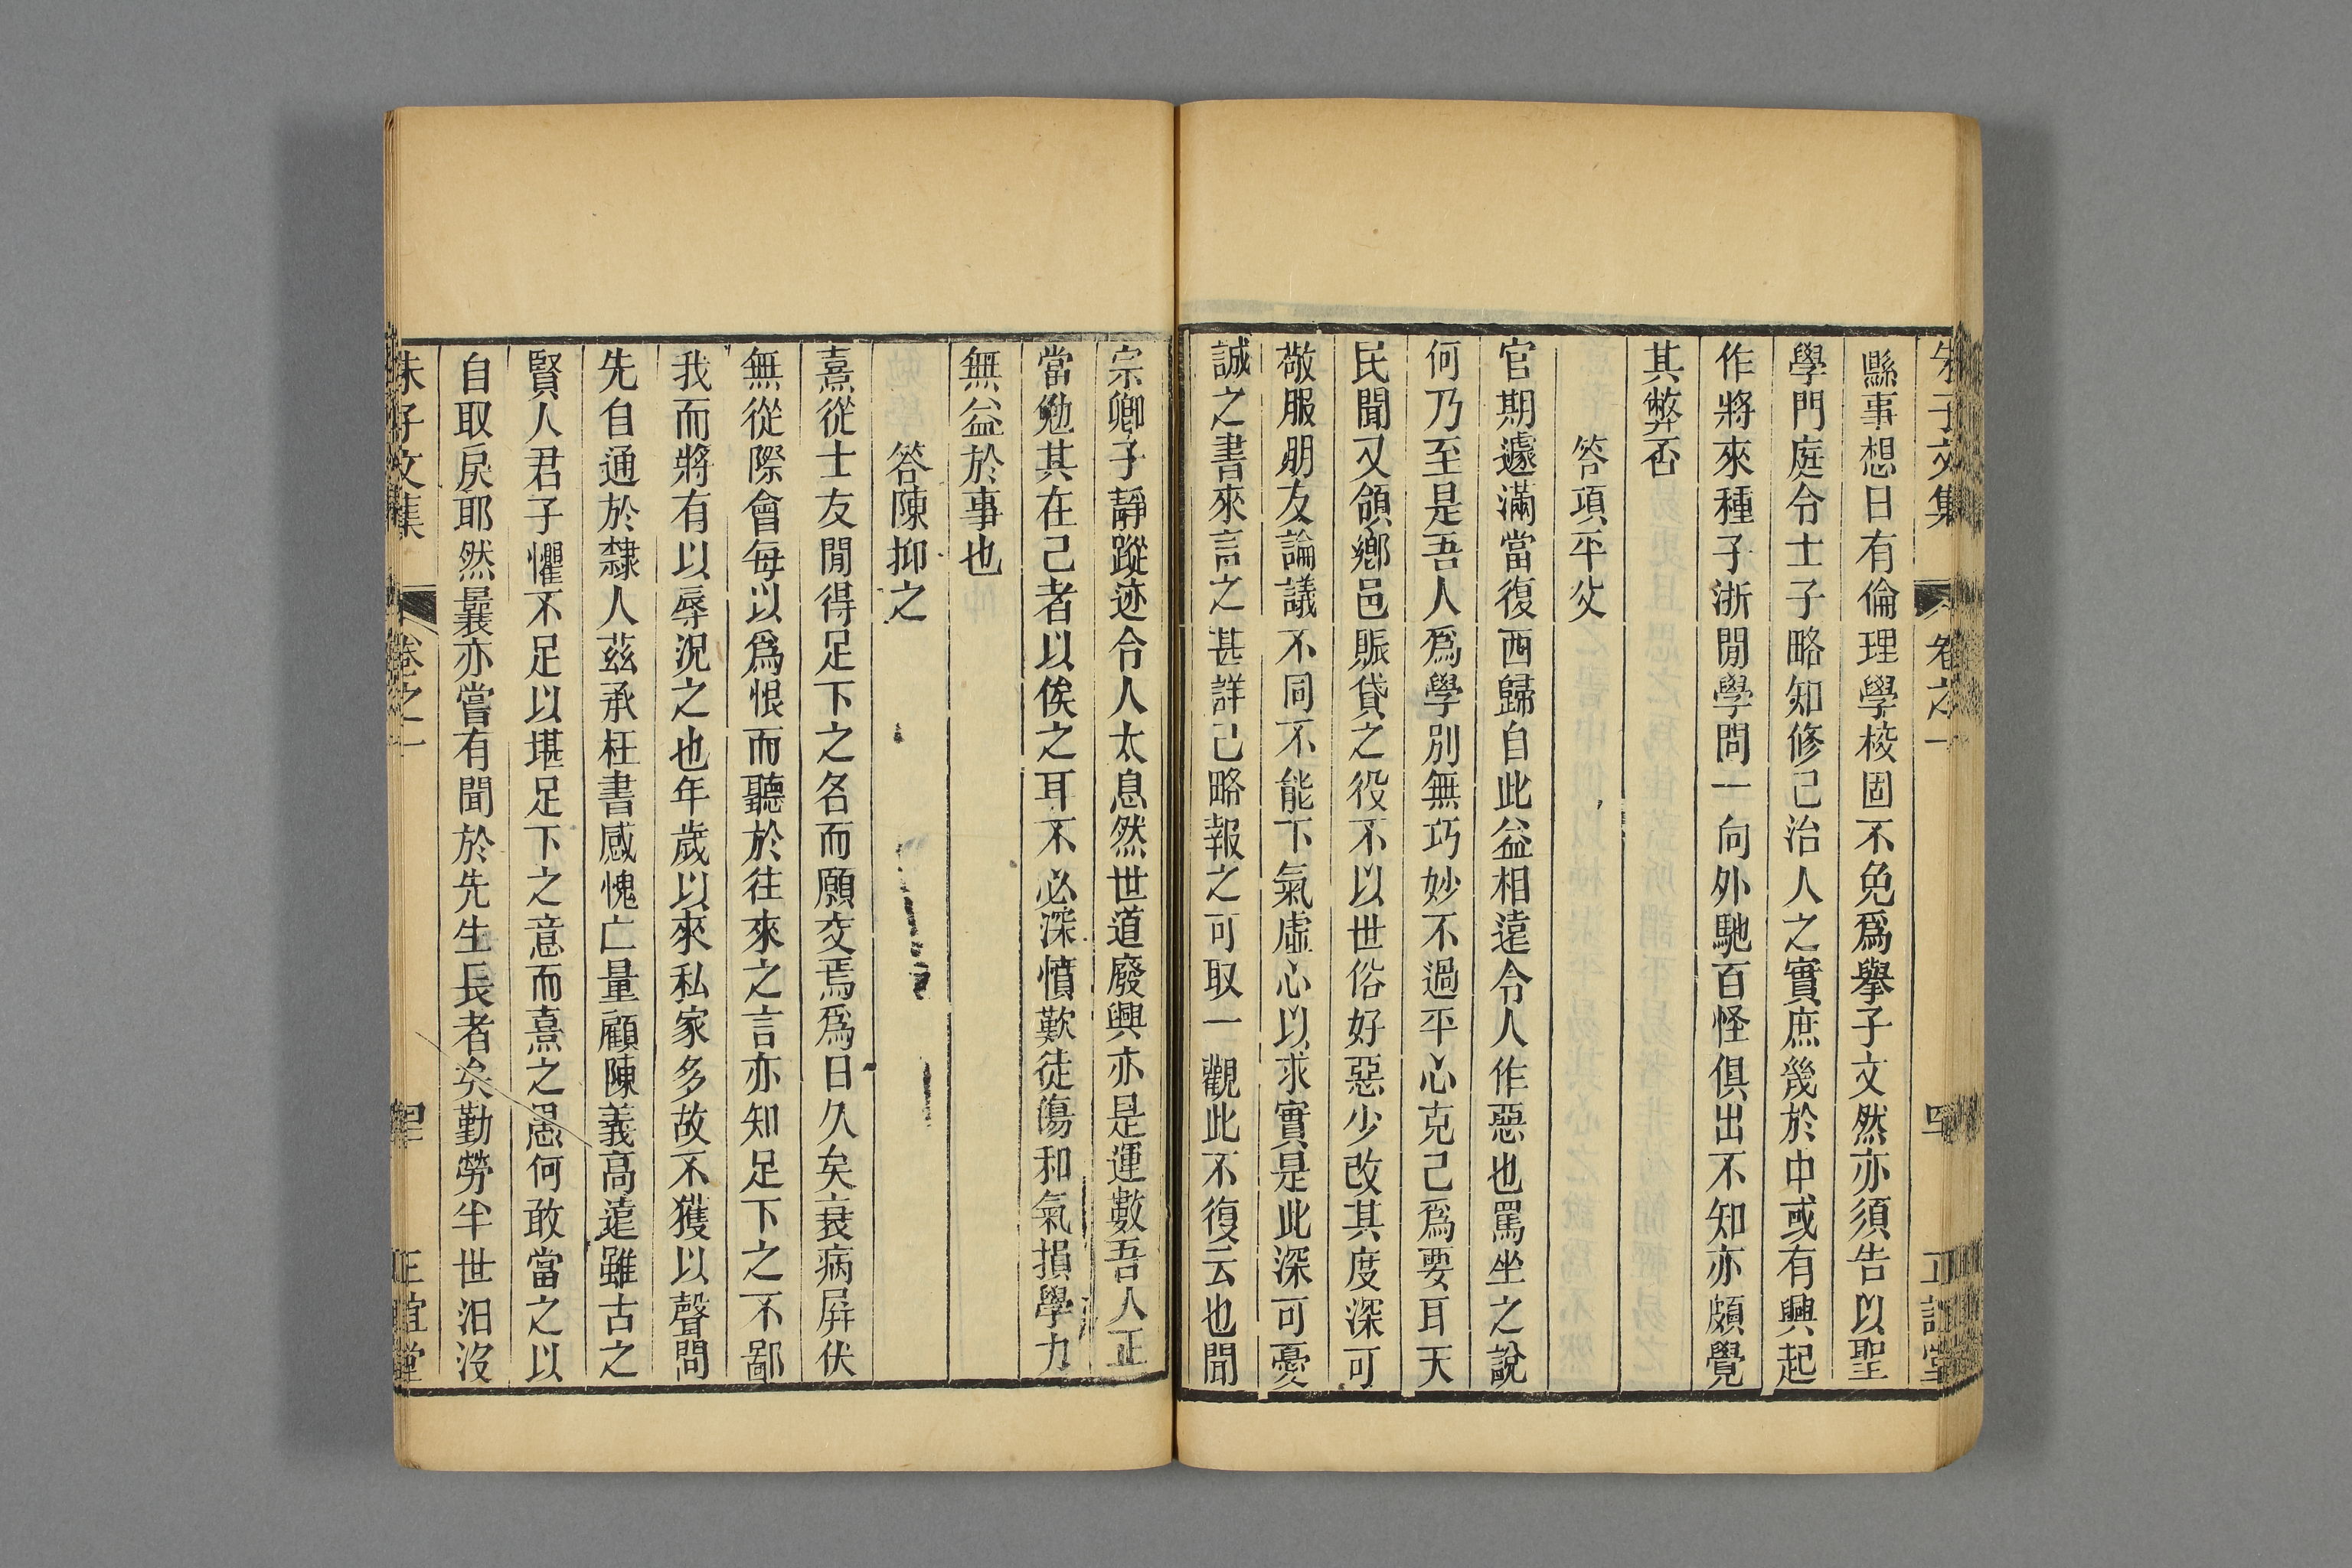 朱子文集 卷之一 四 正誼堂
縣事想日有倫理學校固不免爲舉子文然亦須告以聖
學門庭令士子略知修己治人之實庶幾於中或有興起
作將來種子浙間學問一向外馳百怪俱出不知亦頗覺
其弊否
答項平父
官期遽滿當復西歸自此益相遠令人作惡也罵坐之說
何乃至是吾人爲學別無巧妙不過平心克己爲要耳天
民聞又領鄉邑賑貸之役不以世俗好惡少改其度深可
敬服朋友論議不同不能下氣虛心以求實是此深可憂
誠之書來言之甚詳已略報之可取一觀此不復云也聞
宗卿子靜蹤迹令人太息然世道廢興亦是運數吾人正
當勉其在己者以俟之耳不必深憤歎徒傷和氣損學力
無益於事也
答陳抑之
熹從士友間得足下之名而願交焉爲日久矣衰病屏伏
無從際會每以爲恨而聽於往來之言亦知足下之不鄙
我而將有以辱況之也年歲以來私家多故不獲以聲問
先自通於隸人茲承枉書感愧亡量顧陳義高遠雖古之
賢人君子懼不足以堪足下之意而熹之愚何敢當之以
自取戾耶然曩亦嘗有聞於先生長者矣勤勞半世汨沒
朱子文集 卷之一 正誼堂